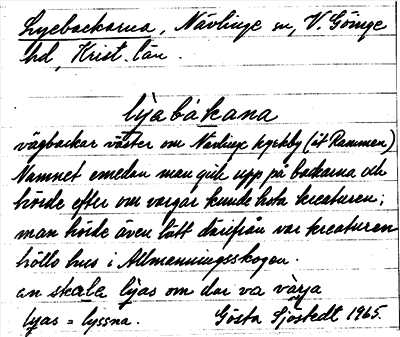 Lyebackarna, Nävlinge sn, V. Göinge
hd, Krist. län.
lỳabákana
vägbackar väster om Nävlinge kyrkby (åt Rammen)
Namnet emedan man gick upp på backarna och
hörde efter om vargar kunde höta kreaturen;
man hörde även lätt därifrån var kreaturen
höllo hus i Allmänningsskogen.
an skala lỳas om dar va vàrja
lyas = lyssna. Gösta Sjöstedt 1965.